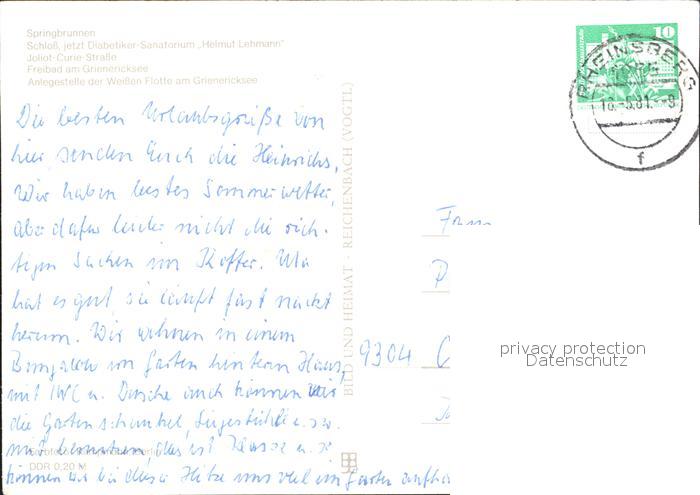 Springbrunnen
Schloß, jetzt Diabetiker-Sanatorium „Helmut Lehmann"
Joliot-Curie-Straße
Freibad am Grienericksee
Anlegestelle der Weißen Flotte am Grienericksee
Die besten Urlaubsgrüße von
hier senden Euch die Heinrichs,
Wir haben bestes Sommerwetter,
aber dafür leider nicht die rich-
tigen Sachen im Koffer.
hat es gut, sie läuft fast nackt
herum. Wir wohnen in einem
Bungalow im Garten hinterm Haus,
mit IWC u. Dusche auch können wir
die Gartenschaukel, Liegestühle u.s.w.
mit benutzen, das ist Klasse u. so
können wir bei dieser Hitze uns viel im Garten
DDR 0,20 M
BILD UND HEIMAT · REICHENBACH (VOGTL)
10
RHEINSBERG
f
9304
privacy protection
Datenschutz